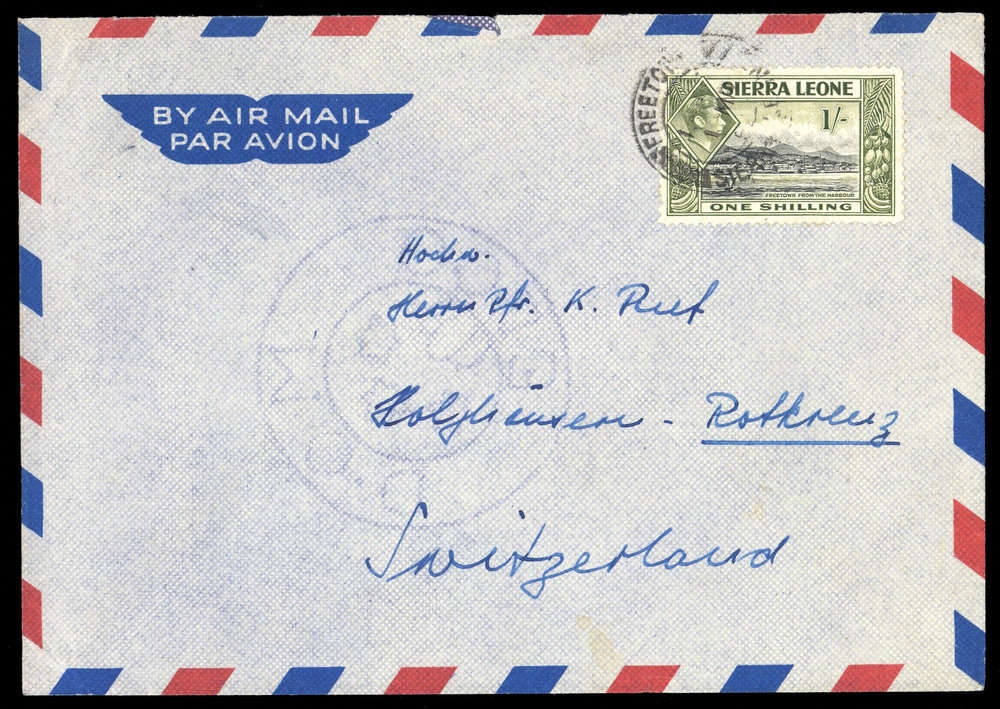 BY AIR MAIL
PAR AVION
FREETOWN
SIERRA LEONE
1/-
FREETOWN FROM THE HARBOUR
ONE SHILLING
Hochw.
Herrn Pfr. K. Ruf
Holzhäusern - Rotkreuz
Switzerland